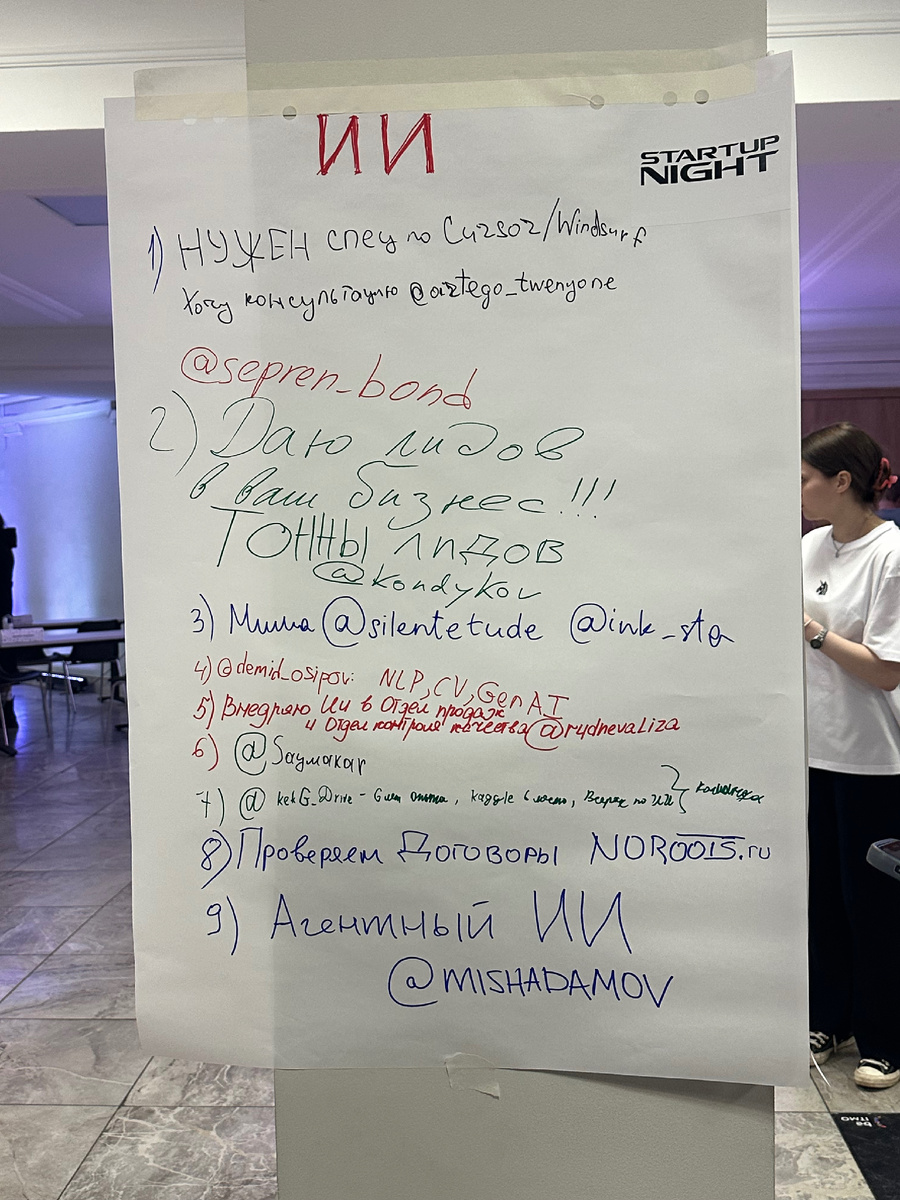 ИИ
STARTUP
NIGHT
1) НУЖЕН спец по Cursor/Windsurf
Хочу консультацию @artego_twenyone
@sepren_bond
2) Даю лидов
в ваш бизнес!!!
ТОННЫ ЛИДОВ
@kondykov
3) Миша @silentetude @ink_sta
4) @demid_osipov: NLP, CV, GenAI
5) Внедряю ИИ в Отдел продаж
и Отдел контроля качества @rydnevaliza
6) @Saymakar
7) @kekG_Drive - 6 лет опыта, Kaggle
8) Проверяем Договоры NOROOTS.ru
9) Агентный ИИ
@MISHADAMOV
ITMO